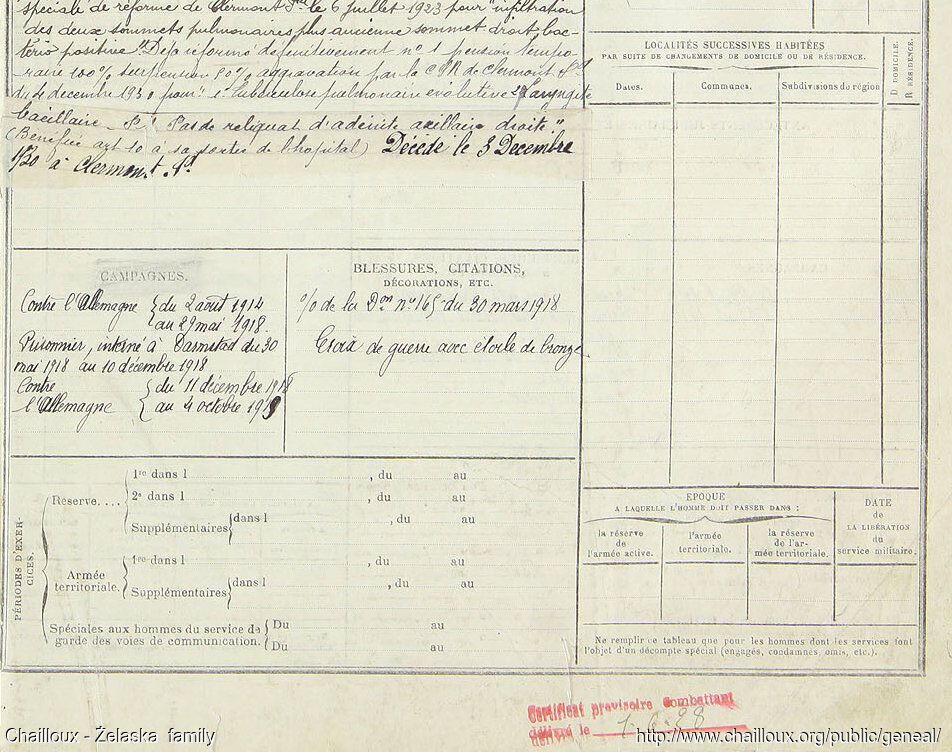 spéciale de réforme de Clermont Fd le 6 juillet 1923 pour infiltration
des deux sommets pulmonaires plus ancienne sommet droit, bac-
tério positive". Déjà réformé définitivement no 1 pension tempo-
raire 100% surpension 90% aggravation par la CSR de Clermont Fd
du 4 décembre 1930 pour "1° tuberculose pulmonaire évolutive 2° laryngite
bacillaire - 3° Pas de reliquat d'adénite axillaire droite."
(Bénéfice art 10 à sa sortie de l'hopital) Décédé le 3 Décembre
1930 à Clermont. Fd.
CAMPAGNES.
Contre l'Allemagne { du 2 août 1914
au 29 mai 1918.
Prisonnier, interné à Darmstad du 30
mai 1918 au 10 décembre 1918
Contre { du 11 décembre 1918
l'Allemagne { au 4 octobre 1919
BLESSURES, CITATIONS,
DÉCORATIONS, ETC.
% de la Don no 165 du 30 mars 1918
Croix de guerre avec étoile de bronze
LOCALITÉS SUCCESSIVES HABITÉES
PAR SUITE DE CHANGEMENTS DE DOMICILE OU DE RÉSIDENCE.
Dates. Communes. Subdivisions de région
D DOMICILE.
R RÉSIDENCE.
PÉRIODES D'EXER-
CICES.
Réserve....
1re dans l , du au
2e dans l , du au
Supplémentaires { dans l , du au
Armée
territoriale.
1re dans l , du au
Supplémentaires { dans l , du au
Spéciales aux hommes du service de { Du au
garde des voies de communication. { Du au
ÉPOQUE
A LAQUELLE L'HOMME DOIT PASSER DANS :
la réserve
de
l'armée active.
l'armée
territoriale.
la réserve
de l'ar-
mée territoriale.
DATE
de
LA LIBÉRATION
du
service militaire.
Ne remplir ce tableau que pour les hommes dont les services font
l'objet d'un décompte spécial (engagés, condamnés, omis, etc.).
Certificat provisoire Combattant
délivré le
Chailloux - Želaska family
http://www.chailloux.org/public/geneal/